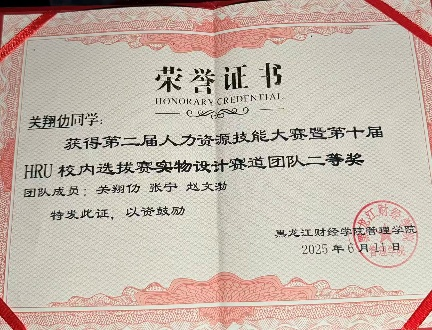 荣誉证书
HONORARY CREDENTIAL
关翔劭同学：
获得第二届人力资源技能大赛暨第十届
HRU 校内选拔赛实物设计赛道团队二等奖
团队成员：关翔劭 张宁 赵文渤
特发此证，以资鼓励
黑龙江财经学院管理学院
2025 年 6 月 11 日